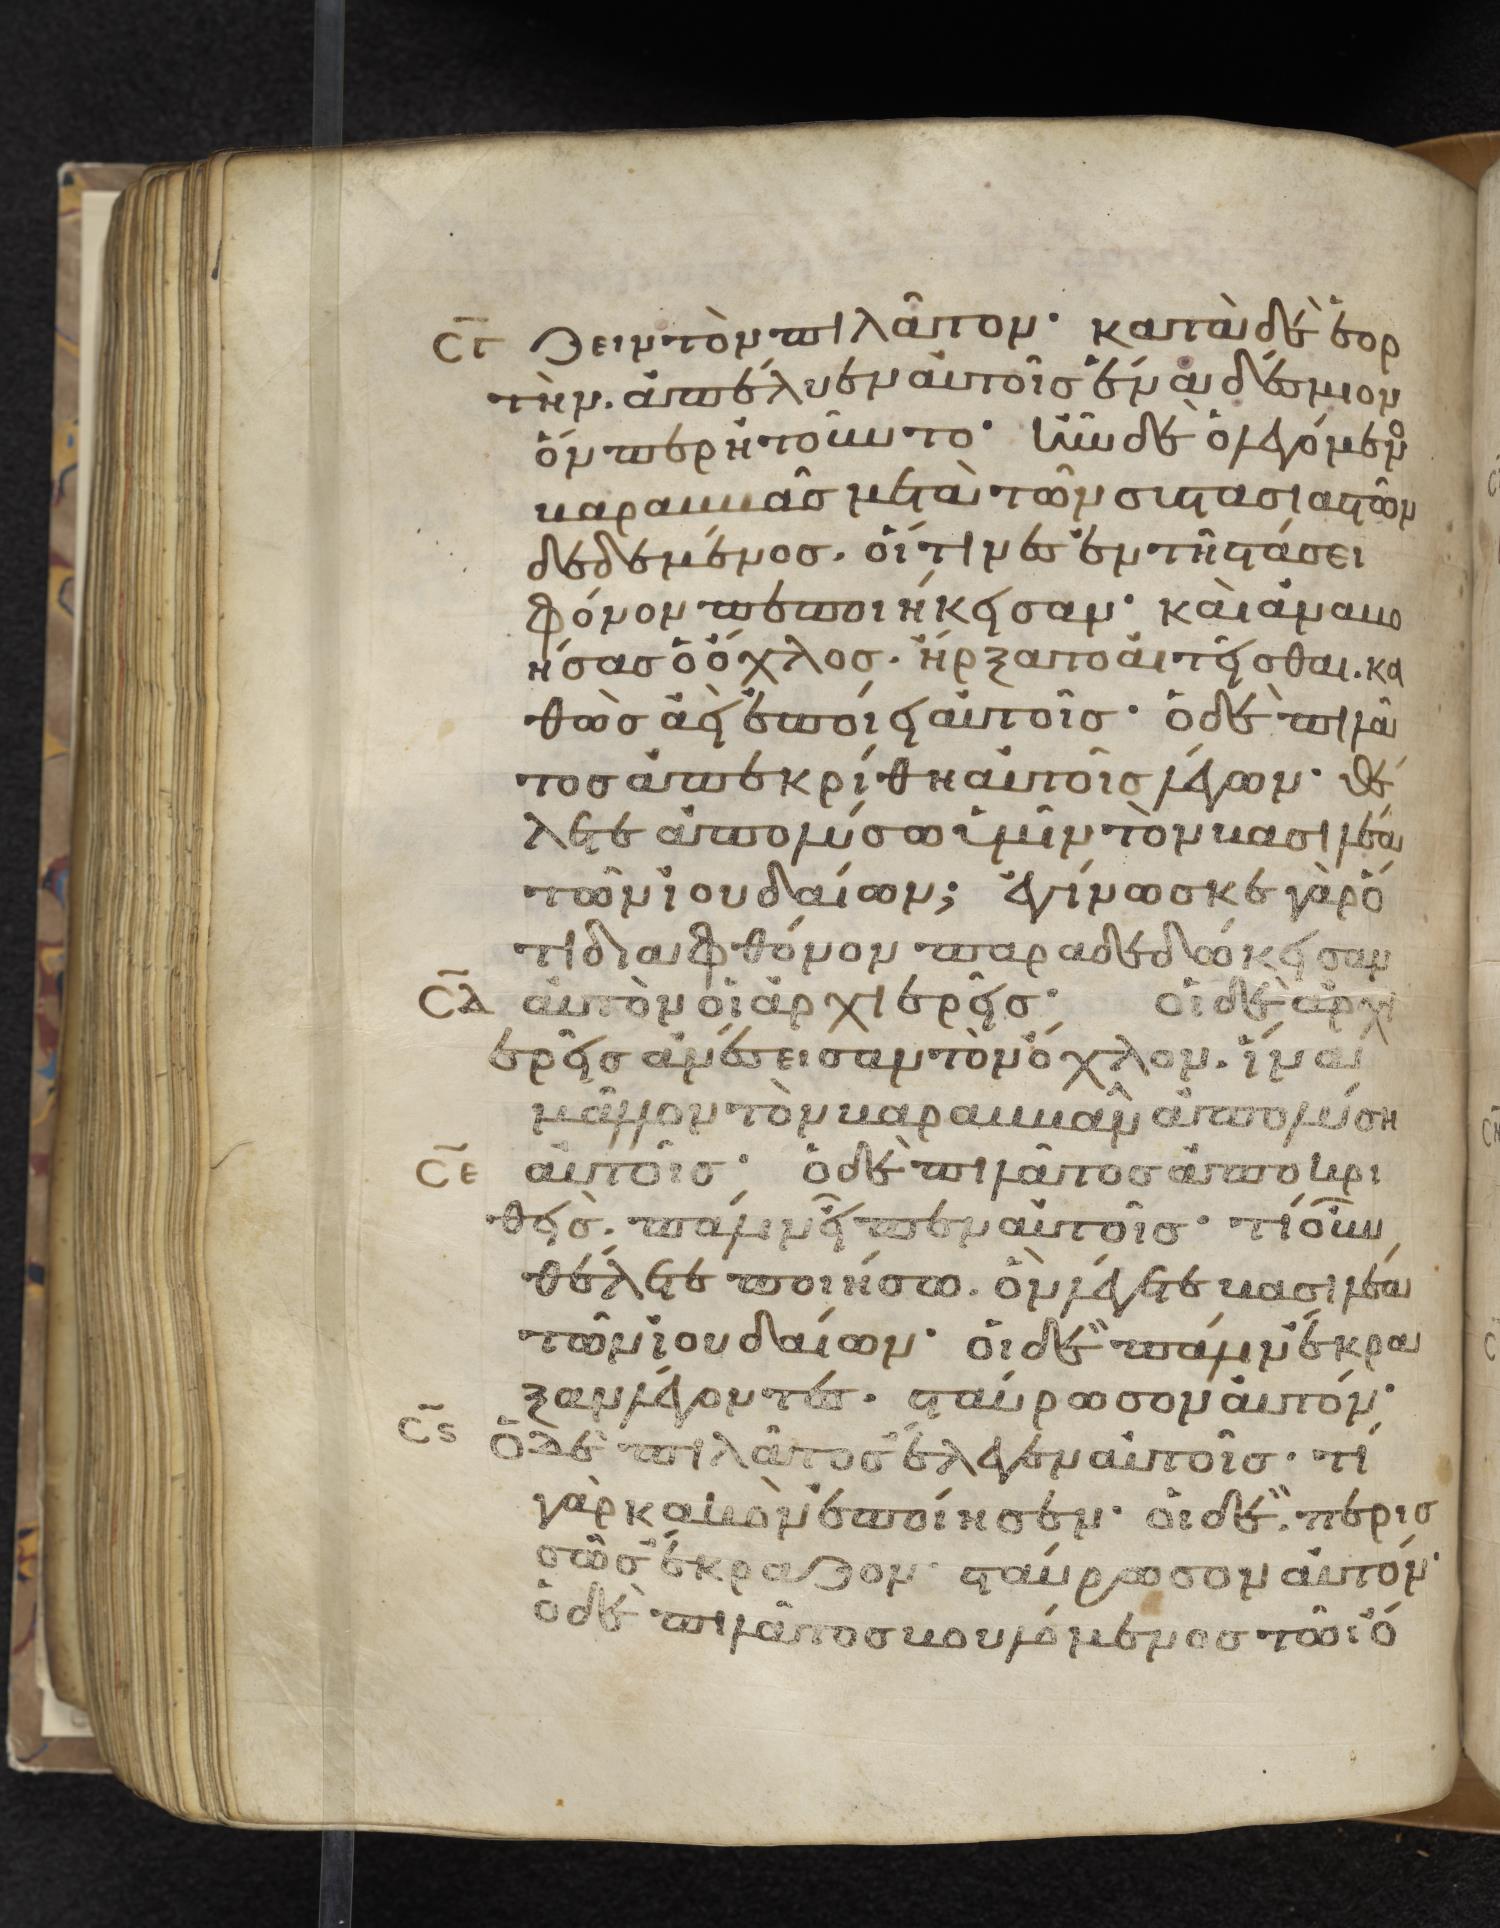 σγ ζειν τὸν πιλᾶτον· κατὰ δὲ ἑορ
τὴν. ἀπέλυεν αὐτοῖς ἕνα δέσμιον
ὅνπερ ἠτοῦντο· ἦν δὲ ὁ λεγόμενο
βαραββᾶς μετὰ τῶν συστασιαστῶν
δεδεμένος. οἵτινες ἐν τῇ στάσει
φόνον πεποιήκεισαν· καὶ ἀναβο
ήσας ὁ ὄχλος. ἤρξατο αἰτεῖσθαι. κα
θὼς ἀεὶ ἐποίει αὐτοῖς· ὁ δὲ πιλᾶ
τος ἀπεκρίθη αὐτοῖς λέγων· θέ
λετε ἀπολύσω ὑμῖν τὸν βασιλέα
τῶν ἰουδαίων; ἐγίνωσκε γὰρ ὅ
τι δια φθόνον παραδεδώκεισαν
σδ αὐτὸν οἱ ἀρχιερεῖς· οἱ δὲ ἀρχι
ερεῖς ἀνέπεισαν τὸν ὄχλον. ἵνα
μᾶλλον τὸν βαραββᾶν ἀπολύση
σε αὐτοῖς· ὁ δὲ πιλᾶτος ἀποκρι
θεὶς. πάλιν εἶπεν αὐτοῖς· τί οὖν
θέλετε ποιήσω. ὃν λέγετε βασιλέα
τῶν ἰουδαίων· οἱ δὲ πάλιν ἔκρα
ξαν λέγοντες. σταύρωσον αὐτόν·
σς Ὁ δὲ πιλᾶτος ἔλεγεν αὐτοῖς· τί
γὰρ κακὸν ἐποίησεν· οἱ δὲ. περισ
σῶς ἔκραζον· σταύρωσον αὐτόν·
ὁ δὲ πιλᾶτος βουλόμενος τῶ ὄ